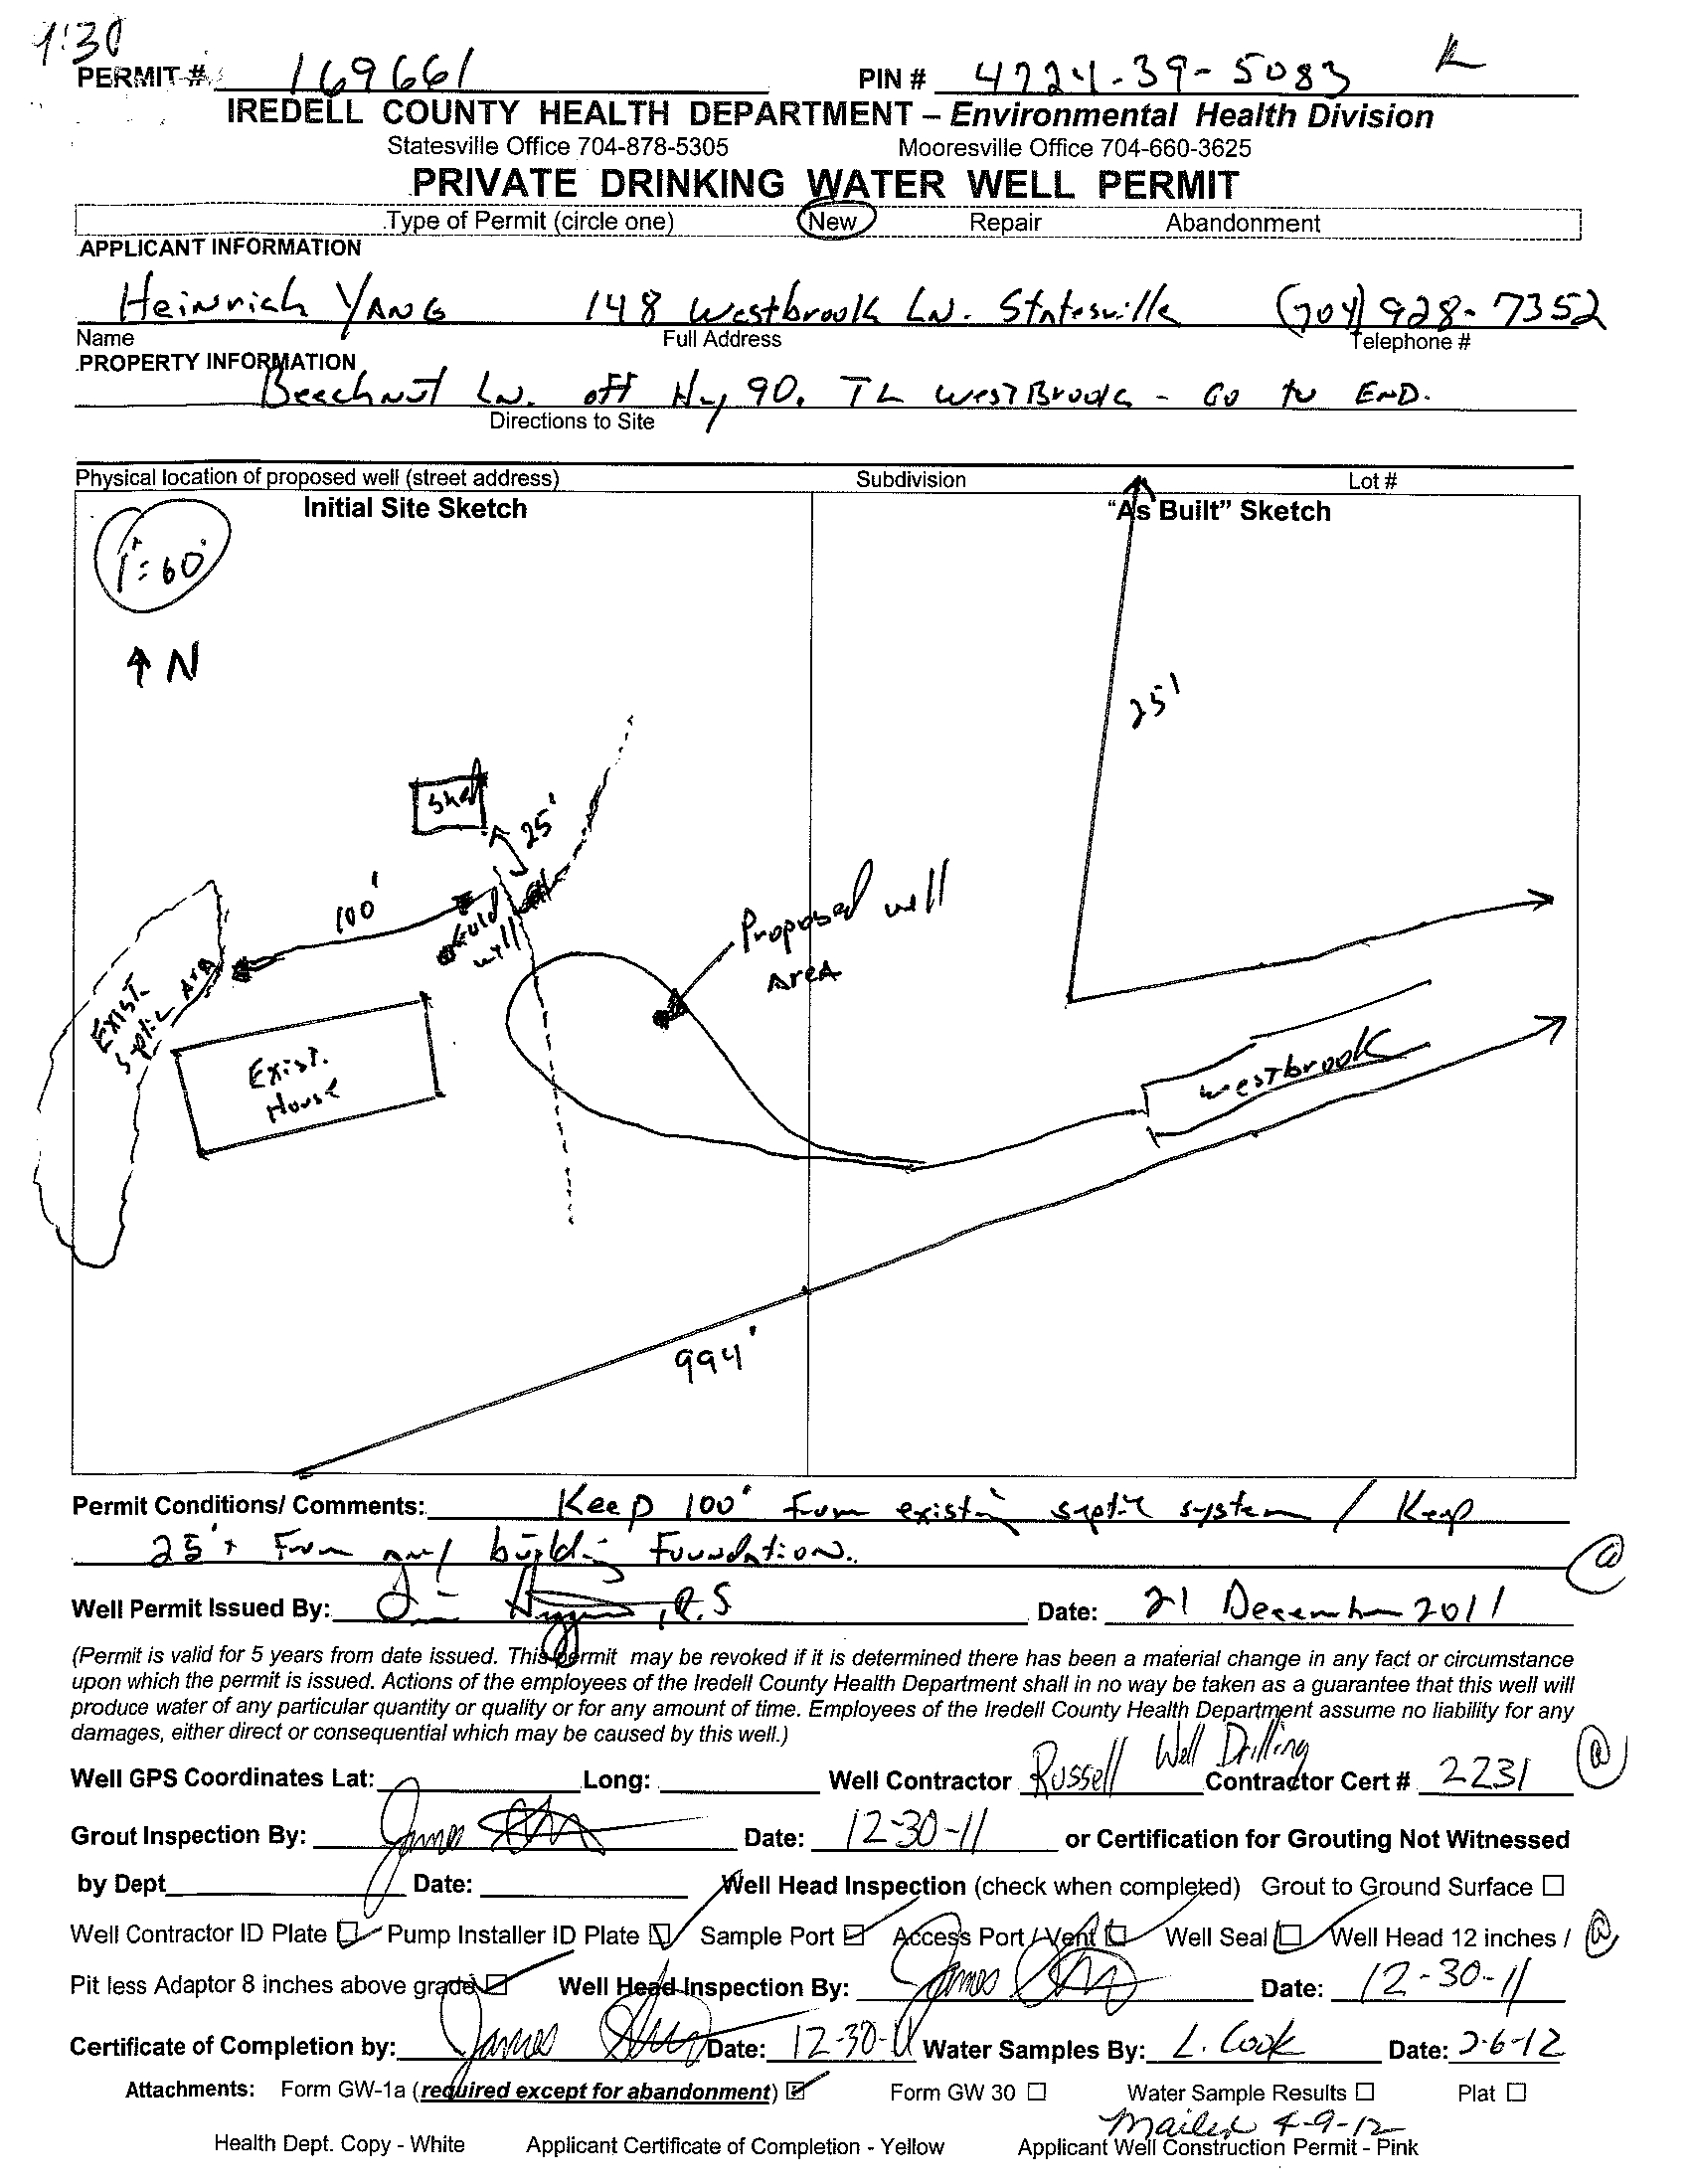 9:30
PERMIT # 169661 PIN # 4724-39-5083
IREDELL COUNTY HEALTH DEPARTMENT – Environmental Health Division
Statesville Office 704-878-5305 Mooresville Office 704-660-3625
PRIVATE DRINKING WATER WELL PERMIT
Type of Permit (circle one) New Repair Abandonment
APPLICANT INFORMATION
Heinrich YANG 148 Westbrook LN. Statesville (704) 928-7352
Name Full Address Telephone #
PROPERTY INFORMATION
Beechnut LN. off Hwy 90. TL WestBrook - Go to END.
Directions to Site
Physical location of proposed well (street address) Subdivision Lot #
Initial Site Sketch "As Built" Sketch
1" = 60'
↑ N
25'
Shed
25'
100'
well
Proposed well
Area
Exist.
Septic Area
Exist.
House
Westbrook
994'
Permit Conditions/ Comments: Keep 100' From existing septic system / Keep
25'+ From any building Foundation.
Well Permit Issued By: , R.S Date: 21 December 2011
(Permit is valid for 5 years from date issued. This permit may be revoked if it is determined there has been a material change in any fact or circumstance
upon which the permit is issued. Actions of the employees of the Iredell County Health Department shall in no way be taken as a guarantee that this well will
produce water of any particular quantity or quality or for any amount of time. Employees of the Iredell County Health Department assume no liability for any
damages, either direct or consequential which may be caused by this well.)
Well GPS Coordinates Lat: Long: Well Contractor Russell Well Drilling Contractor Cert # 2231
Grout Inspection By: James Date: 12-30-11 or Certification for Grouting Not Witnessed
by Dept Date: Well Head Inspection (check when completed) Grout to Ground Surface
Well Contractor ID Plate Pump Installer ID Plate Sample Port Access Port / Vent Well Seal Well Head 12 inches /
Pit less Adaptor 8 inches above grade Well Head Inspection By: James Date: 12-30-11
Certificate of Completion by: James Date: 12-30-11 Water Samples By: L. Cook Date: 2-6-12
Attachments: Form GW-1a (required except for abandonment) Form GW 30 Water Sample Results Plat
Mailed 4-9-12
Health Dept. Copy - White Applicant Certificate of Completion - Yellow Applicant Well Construction Permit - Pink